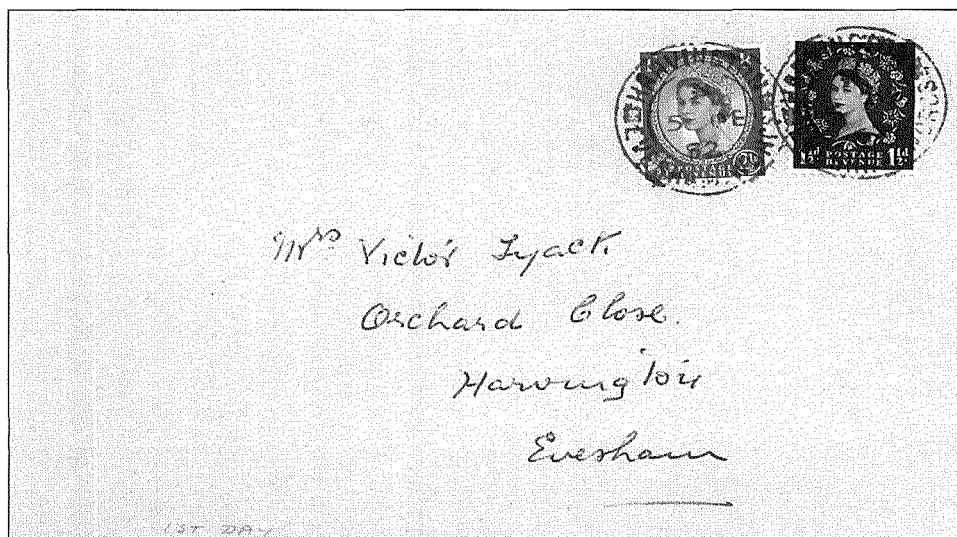 5 DE
52
POSTAGE
REVENUE
1½d
Mrs Victor Tyack
Orchard Close.
Harvington
Evesham
1ST DAY